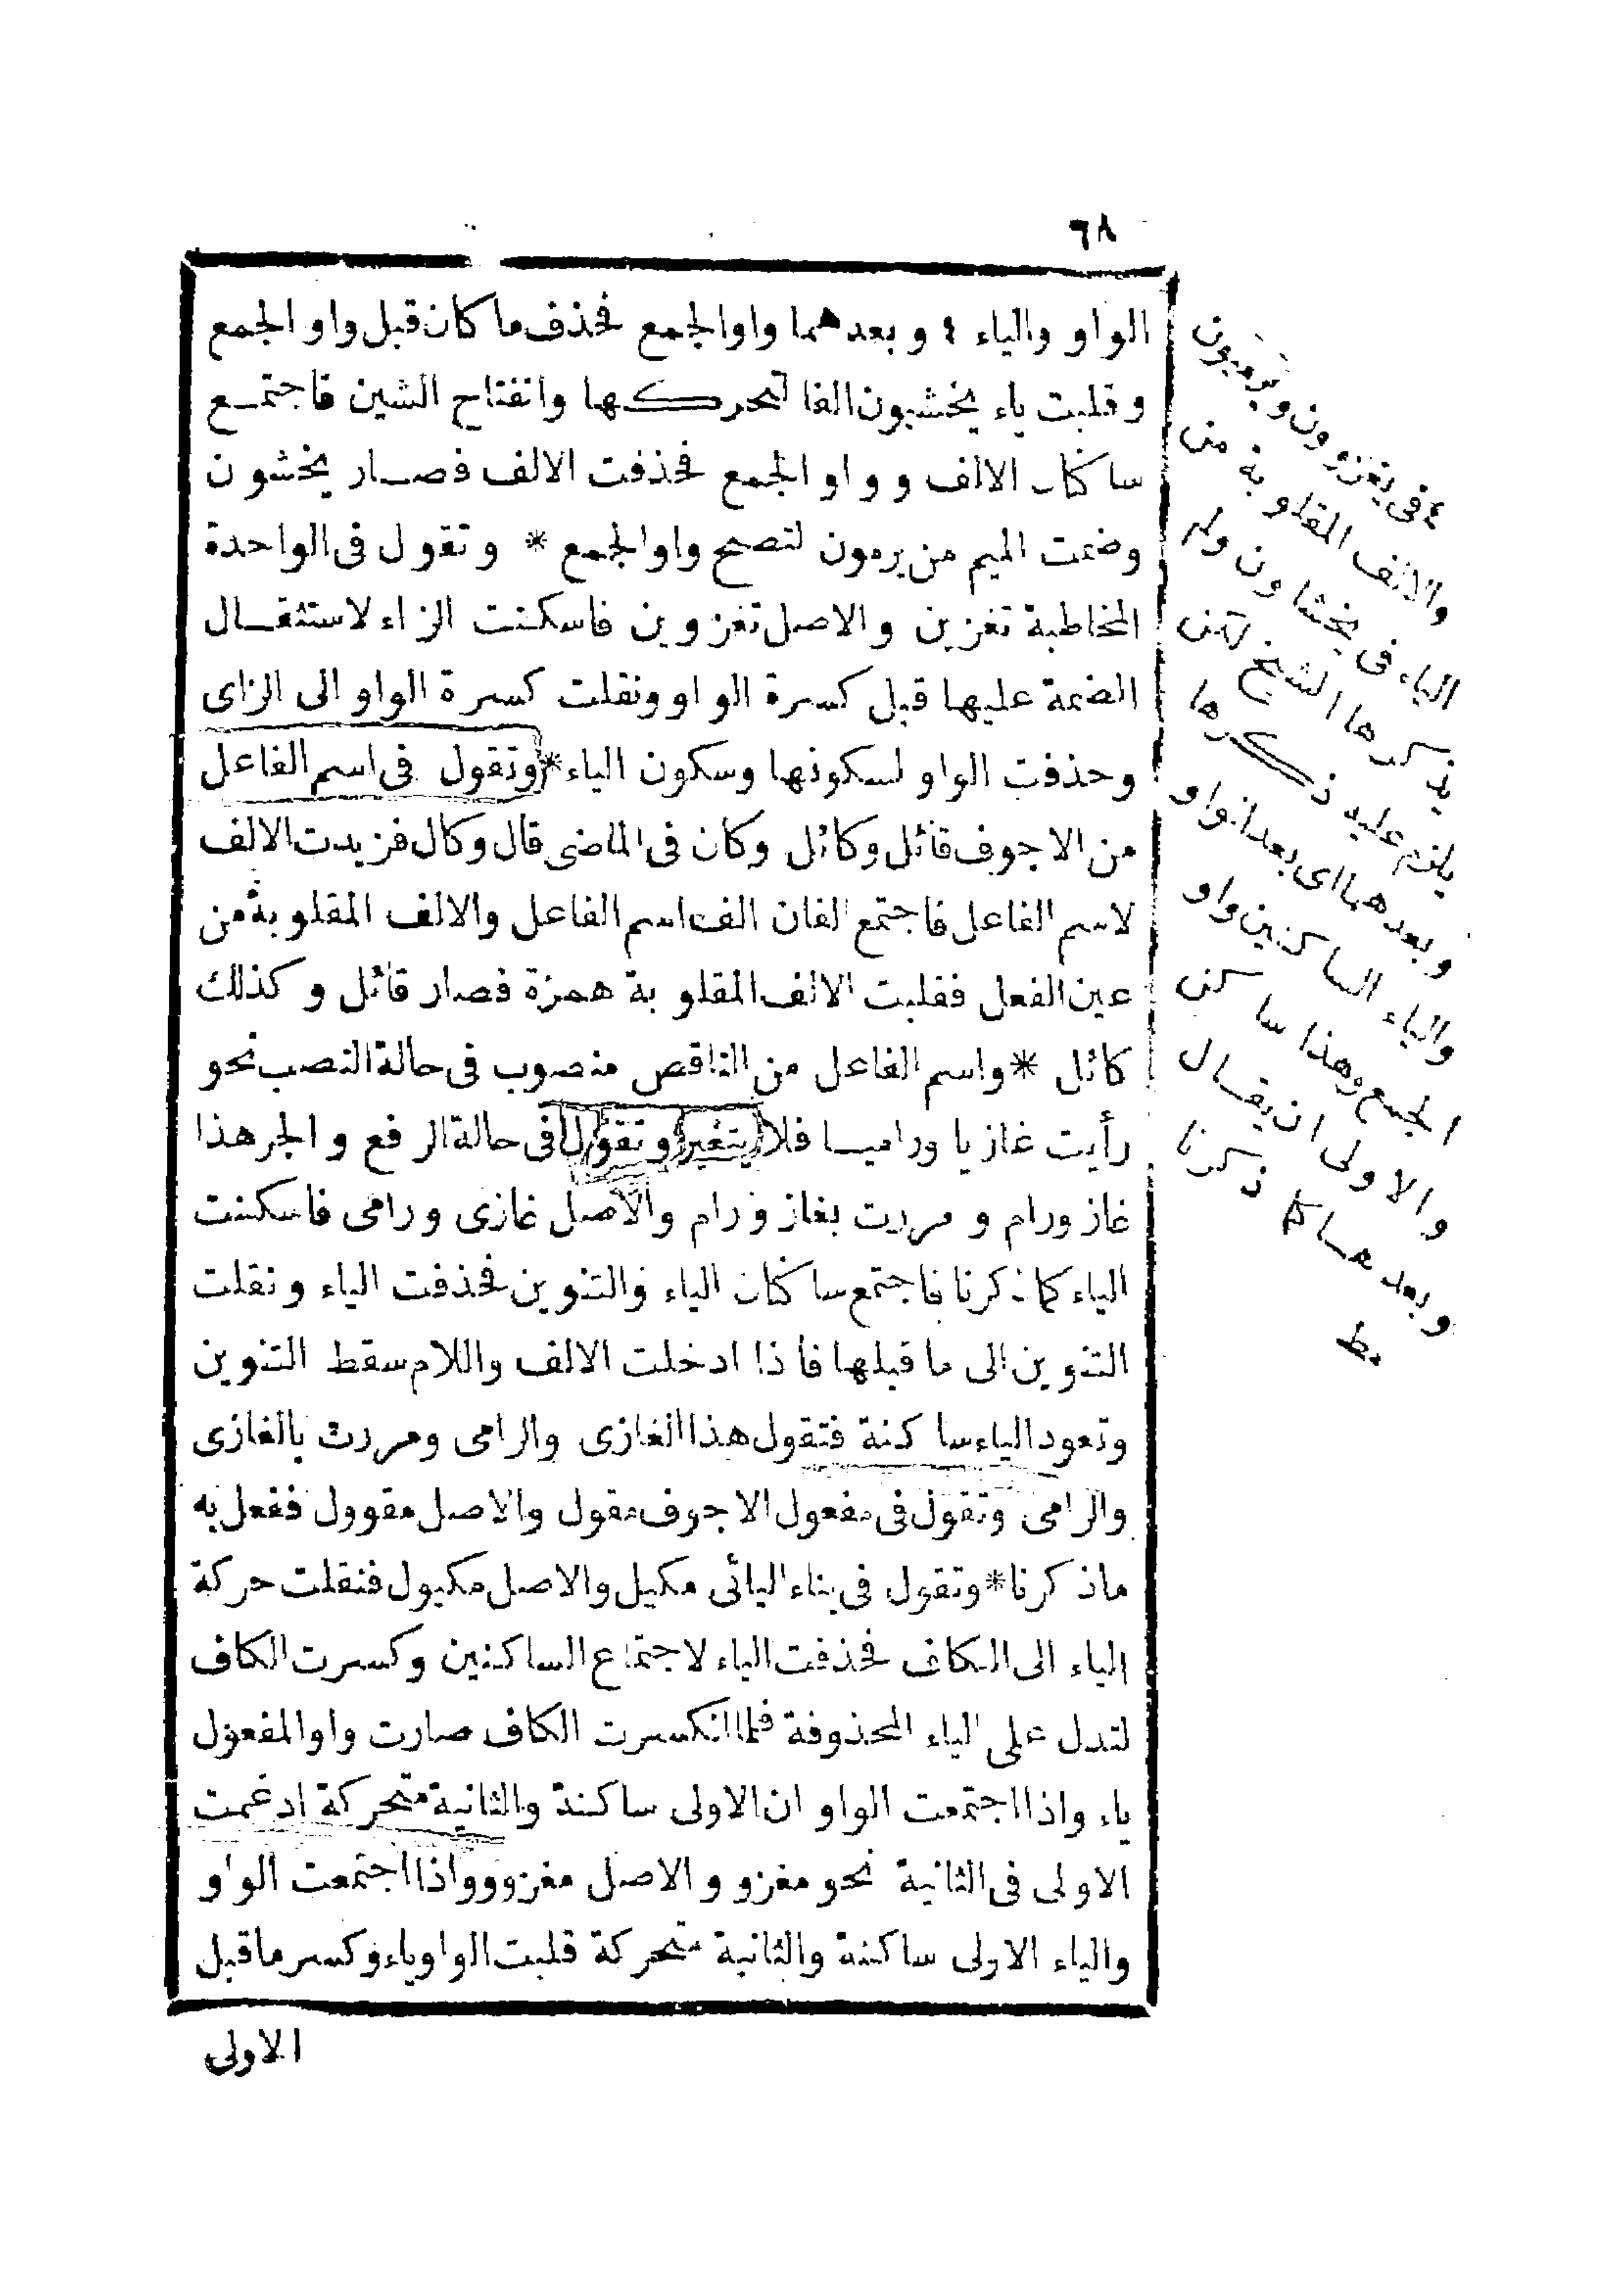 ٦٨
الواو والياء ٤ وبعدهما واوالجمع فحذف ماكان قبل واو الجمع
وقلبت ياء يخشيون الفا لتحركها وانفتاح الشين فاجتمع
ساكنان الالف وواو الجمع فحذفت الالف فصار يخشون
وضمت الميم من يرمون لتصح واوالجمع * وتقول فى الواحدة
المخاطبة تغزين والاصل تغزوين فاسكنت الزاء لاستثقال
الضمة عليها قبل كسرة الواو ونقلت كسرة الواو الى الزاى
وحذفت الواو لسكونها وسكون الياء * وتقول فى اسم الفاعل
من الاجوف قائل وكائل وكان فى الماضى قال وكال فزيدت الالف
لاسم الفاعل فاجتمع الفان الف اسم الفاعل والالف المقلوبة من
عين الفعل فقلبت الالف المقلوبة همزة فصار قائل وكذلك
كائل * واسم الفاعل من الناقص منصوب فى حالة النصب نحو
رأيت غازيا وراميا فلا يتغير وتقول فى حالة الرفع والجر هذا
غاز ورام ومررت بغاز ورام والاصل غازى ورامى فاسكنت
الياء كما ذكرنا فاجتمع ساكنان الياء والتنوين فحذفت الياء ونقلت
التنوين الى ما قبلها فاذا ادخلت الالف واللام سقط التنوين
وتعود الياء ساكنة فتقول هذا الغازى والرامى ومررت بالغازى
والرامى وتقول فى مفعول الاجوف مقول والاصل مقوول ففعل به
ماذكرنا * وتقول فى بناء اليائى مكيل والاصل مكيول فنقلت حركة
الياء الى الكاف فحذفت الياء لاجتماع الساكنين وكسرت الكاف
لتدل على الياء المحذوفة فلما انكسرت الكاف صارت واوالمفعول
ياء واذا اجتمعت الواو ان الاولى ساكنة والثانية متحركة ادغمت
الاولى فى الثانية نحو مغزو والاصل مغزوو واذا اجتمعت الواو
والياء الاولى ساكنة والثانية متحركة قلبت الواو ياء وكسر ماقبل
الاولى
٤ فى يغزوون ويرميون
والالف المقلوبة من
الياء فى يخشاون ولم
يذكرها الشيخ لكن
يلزم عليه ذكرها
وبعدهما اى بعد الواو
والياء الساكنين واو
الجمع وهذا ساكن
والاولى ان يقال
وبعدها كما ذكرنا